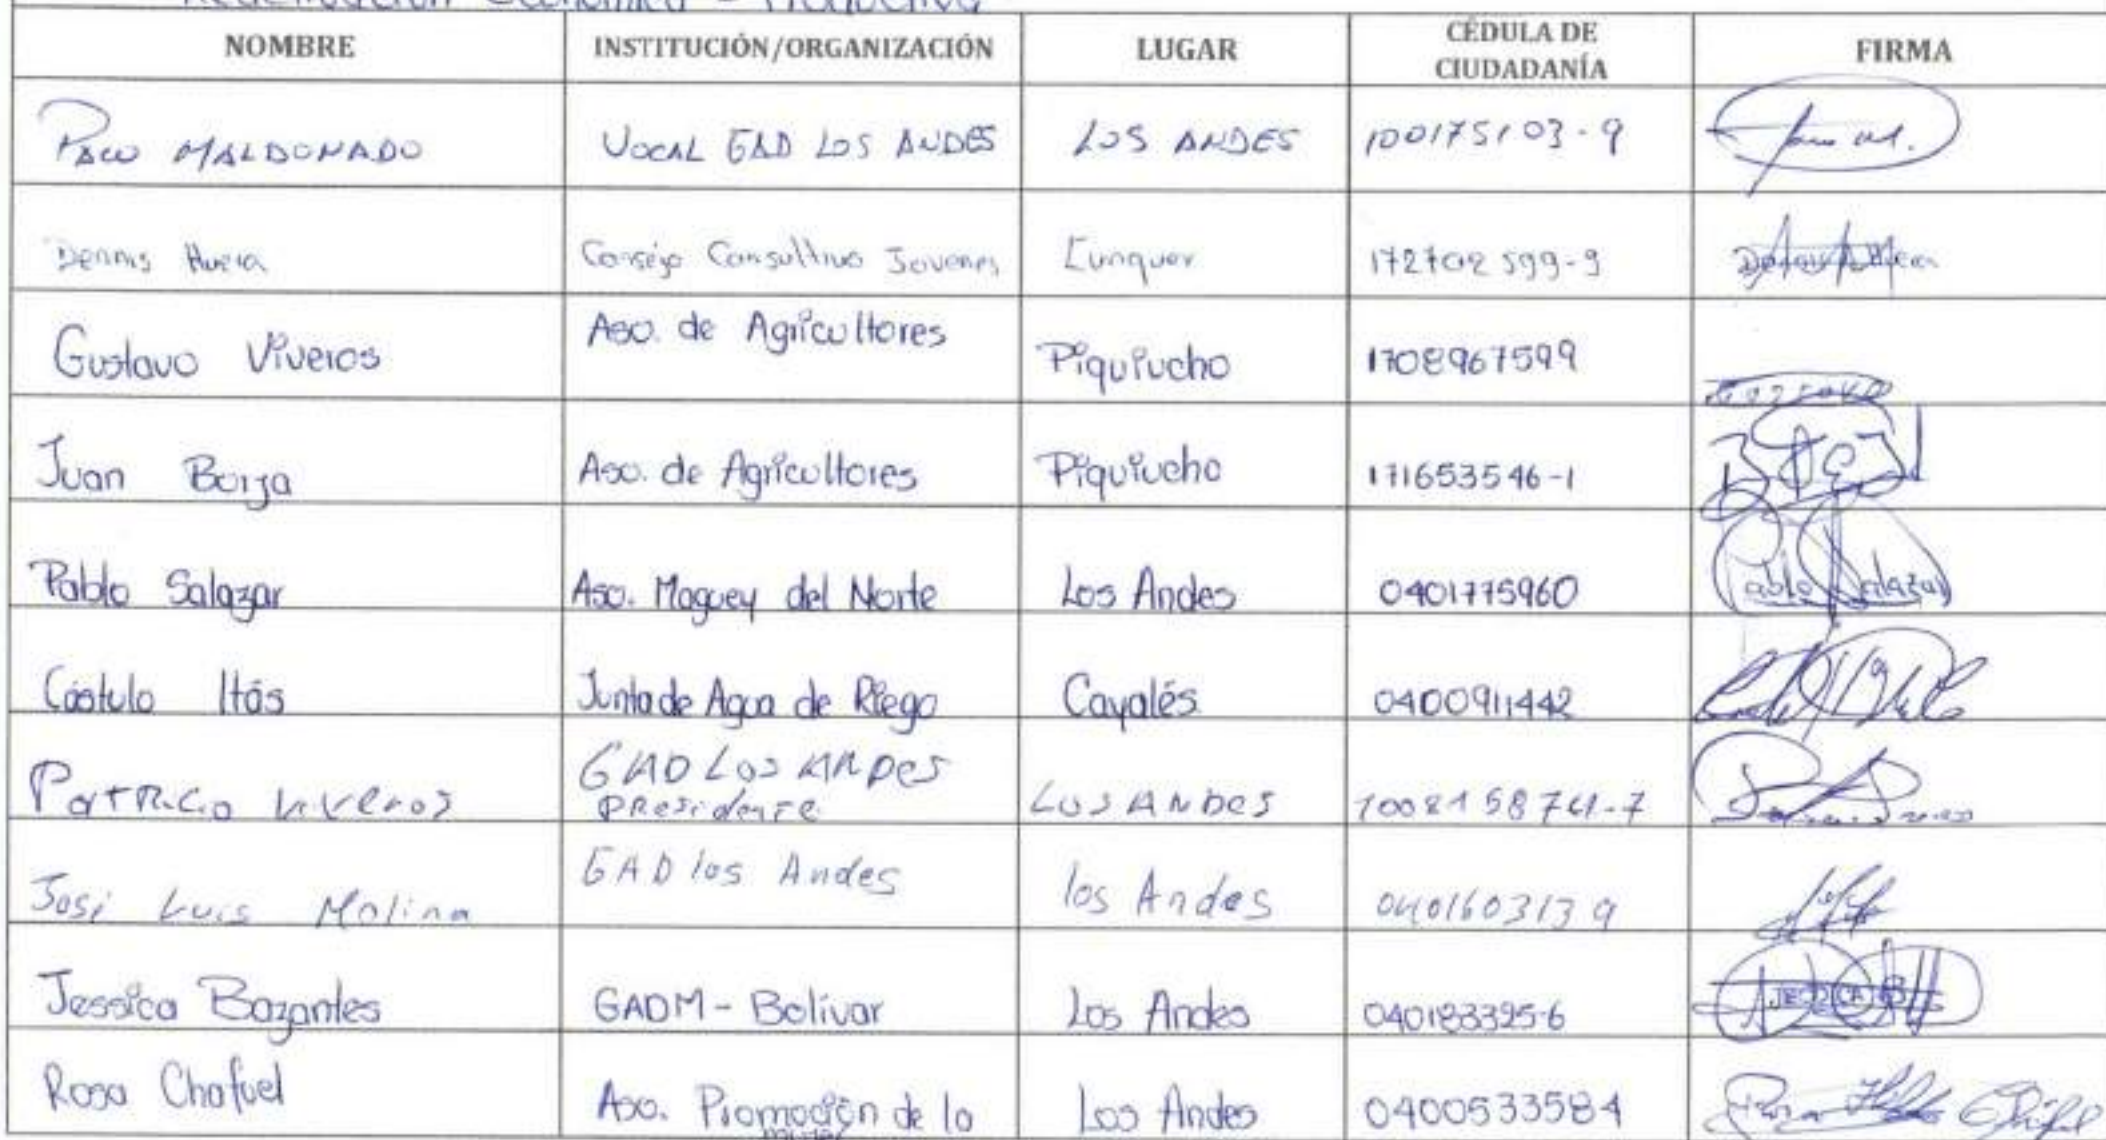 Reactivación Económica - Productiva
NOMBRE INSTITUCIÓN/ORGANIZACIÓN LUGAR CÉDULA DE CIUDADANÍA FIRMA
PACO MALDONADO VOCAL GAD LOS ANDES LOS ANDES 100175103-9
Dennis Consejo Consultivo Jovenes 172702599-9
Gustavo Viveros Aso. de Agricultores Piquiucho 1708967599
Juan Borja Aso. de Agricultores Piquiucho 171653546-1
Pablo Salazar Aso. Maguey del Norte Los Andes 0401775960 Pablo Salazar
Cástulo Itás Junta de Agua de Riego Cayalés 0400911442
Patricio Viveros GAD Los ANDES Presidente Los ANDES
José Luis Molina GAD los Andes los Andes 0401603139
Jessica Bazantes GADM - Bolívar Los Andes 0401833956
Rosa Chafuel Aso. Promoción de la mujer Los Andes 0400533584